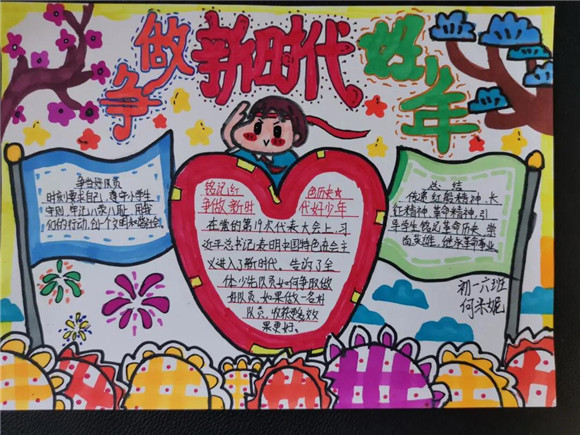 争做新时代好少年
争当好队员
时刻要求自己，遵守小学生
守则，牢记八荣八耻，用我
们的行动，创个文明和谐社会
铭记红色历史
争做新时代好少年
在党的第19次代表大会上，习
近平总书记表明中国特色社会主
义进入了新时代，告诉了全
体少先队员如何争取做
好队员，如果做一名好
队员，收获更多效
果更好。
总结
传承红船精神，长
征精神，革命精神，引
导学生铭记革命历史，崇
尚英雄，继承革命事业
初一六班
何米妮